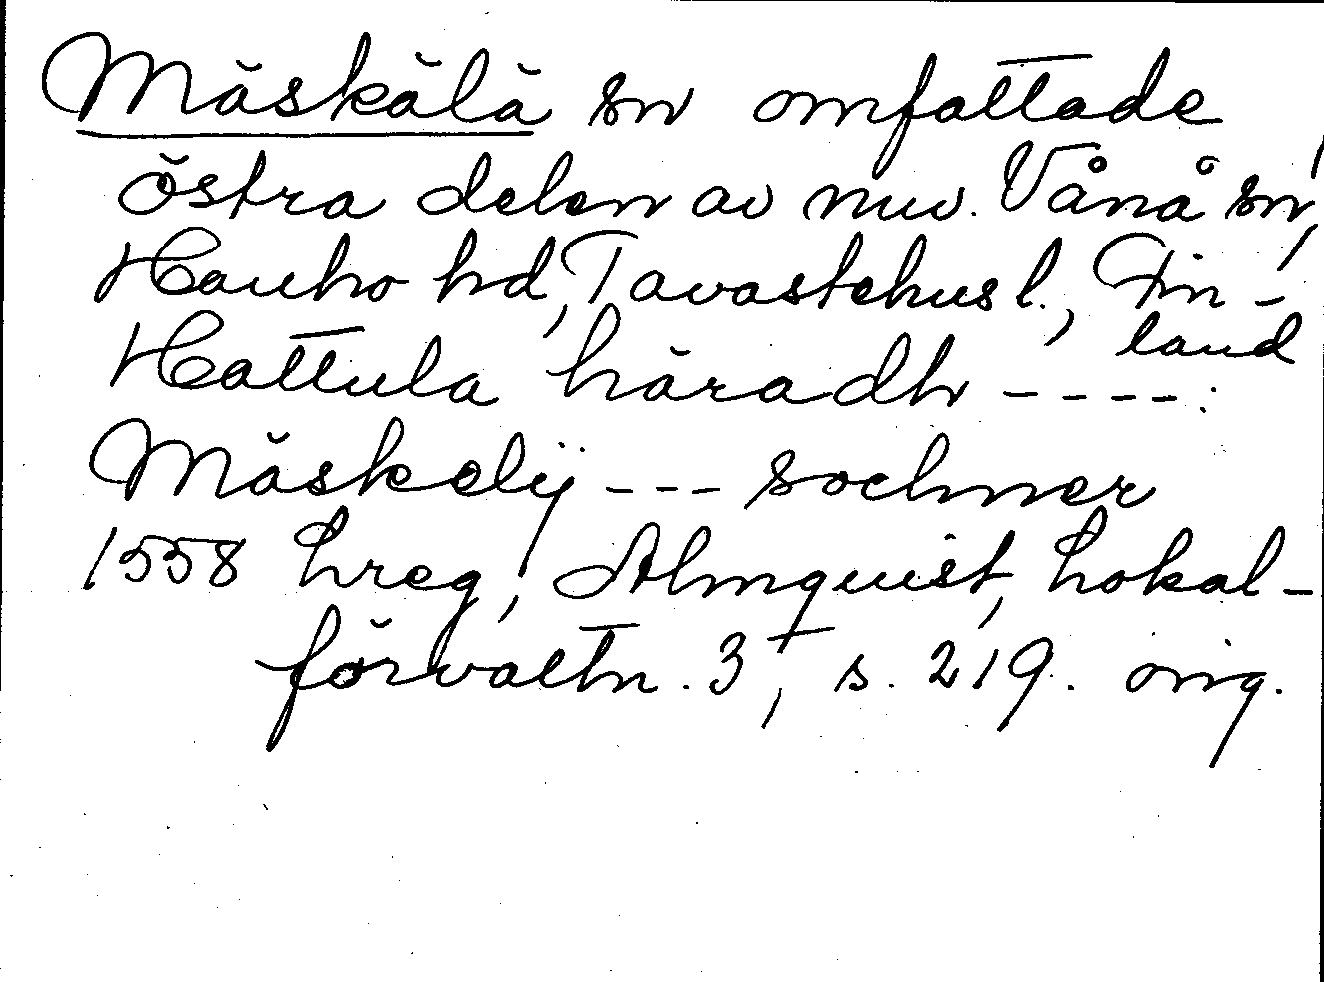 Mäskälä sn omfattade
östra delen av nuv. Vånå sn,
Hauho hd, Tavastehus l., Fin-
land
Hattula häradh ----:
Mäskelij --- sochner
1558 Lreg, Almquist, Lokal-
förvaltn. 3, s. 219. orig.